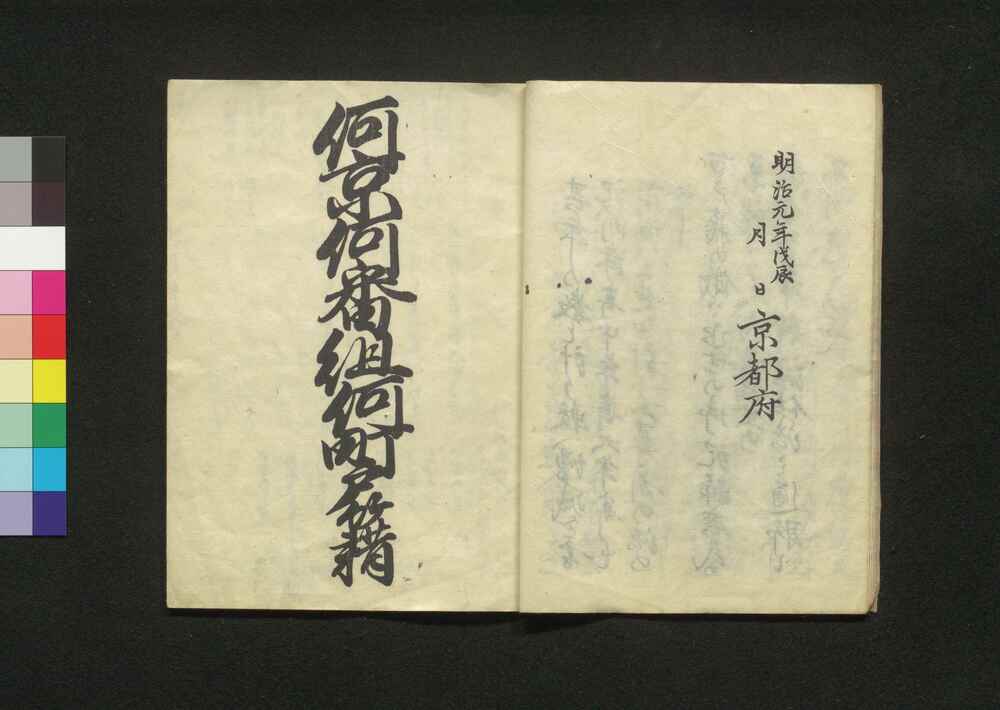 明治元年戊辰
月
日
京都府
何京何番組何町戸籍